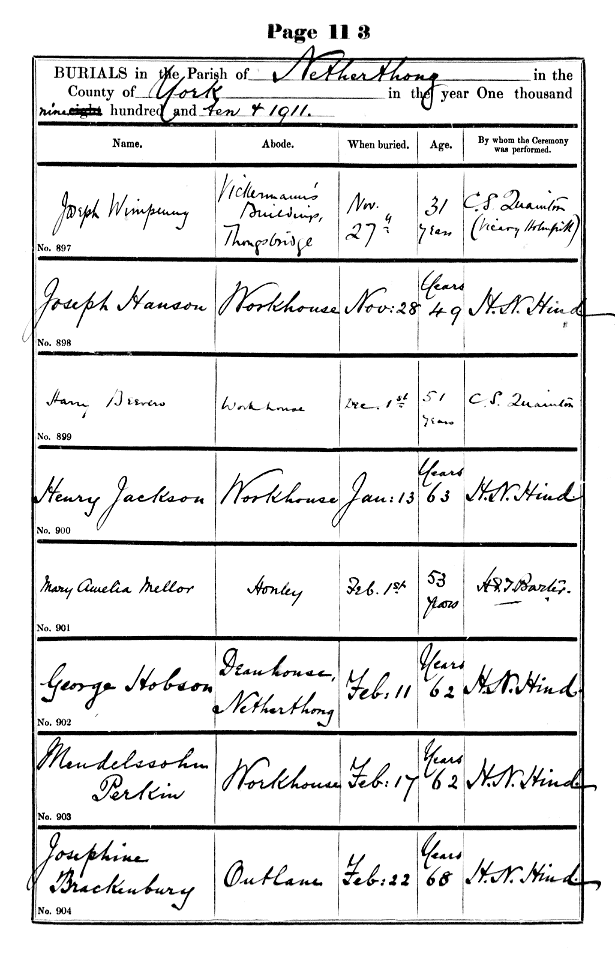 Page 113
BURIALS in the Parish of Netherthong in the
County of York in the year One thousand
nine eight hundred and ten & 1911.
Name. Abode. When buried. Age. By whom the Ceremony was performed.
Joseph Wimpenny
Vickermann's
Buildings,
Thongsbridge
Nov.
27th
31
years
C. S. Quainton
(Vicar of
No. 897
Joseph Hanson Workhouse Nov: 28 Years 49 H. N. Hind
No. 898
Harry Workhouse Dec. 1st 51 years C. S. Quainton
No. 899
Henry Jackson Workhouse Jan: 13 Years 63 H. N. Hind
No. 900
Mary Amelia Mellor Honley Feb. 1st 53 years
No. 901
George Hobson
Deanhouse,
Netherthong
Feb: 11
Years
62
H. N. Hind
No. 902
Mendelssohn
Perkin
Workhouse
Feb: 17
Years
62
H. N. Hind
No. 903
Josephine
Brackenbury
Outlane
Feb: 22
Years
68
H. N. Hind
No. 904